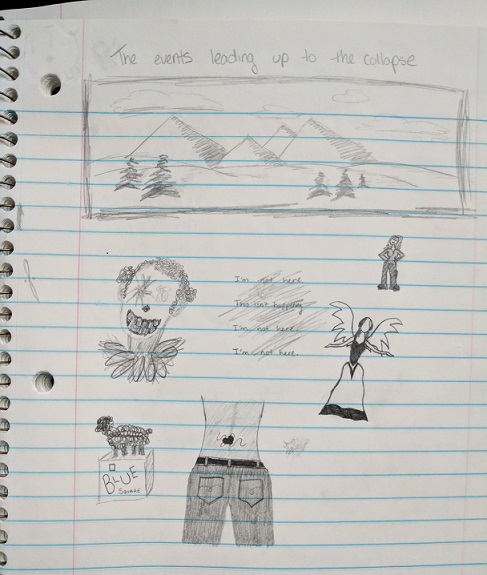 The events leading up to the collapse
I'm not here.
This isnt happening
I'm not here.
I'm not here.
BLUE
Square